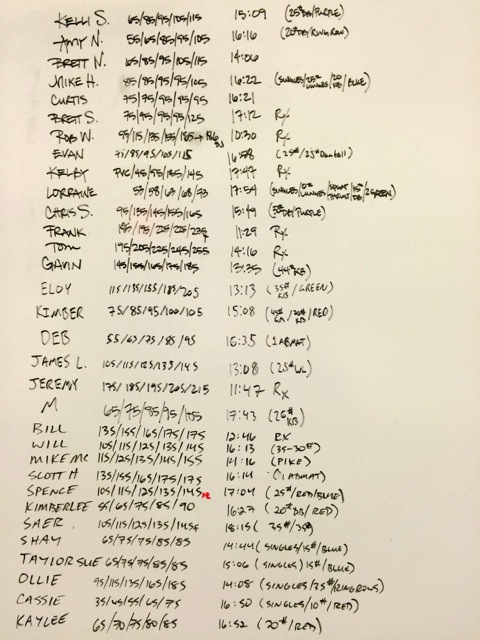 KELLI S. 65/85/95/105/115 15:09 (25#DB/PURPLE)
AMY N. 55/65/85/95/105 16:16 (20#DB/RING ROW)
BRETT N. 65/85/95/105/115 14:06
MIKE H. 85/85/95/95/105 16:22 (SINGLES/25# /BLUE)
CURTIS 75/75/95/95/95 16:21
BRETT S. 75/95/95/95/125 17:12 Rx
ROB W. 95/115/135/155/185 10:30 Rx
EVAN 75/85/95/105/115 16:58 (25#/25# Dumbell)
KELBY PVC/45/55/135/145 17:47 Rx
LORRAINE 53/58/63/68/73 17:54 (SINGLES/10# /2 GREEN)
CHRIS S. 95/135/145/155/165 15:49 (50#DB/PURPLE)
FRANK 185/195/205/225/235 11:29 Rx
TOM 195/205/225/245/255 14:16 Rx
GAVIN 145/155/165/175/185 13:35 (44#KB)
ELOY 115/135/155/185/205 13:13 (35# KB/GREEN)
KIMBER 75/85/95/100/105 15:08 (45# /20# KB/RED)
DEB 55/65/75/85/95 16:35 (1 ABMAT)
JAMES L. 105/115/125/135/145 13:08 (25# WL)
JEREMY 175/185/195/205/215 11:47 Rx
M 65/75/85/95/105 17:43 (26# KB)
BILL 135/155/165/175/175 12:46 RX
WILL 105/115/125/135/145 16:13 (35-30#)
MIKE MC 115/125/135/145/155 14:16 (PIKE)
SCOTT H 135/155/165/175/175 16:14 (1 ABMAT)
SPENCE 105/115/125/135/145 PR 17:04 (25#/RED/BLUE)
KIMBERLEE 55/65/75/85/90 16:27 (20#DB/RED)
SAER. 105/115/125/135/145 18:15 (35#/25#)
SHAY 65/75/75/85/85 14:44 (SINGLES/15#/BLUE)
TAYLOR SUE 65/75/75/85/85 15:06 (SINGLES/15#/BLUE)
OLLIE 95/115/135/165/185 14:08 (SINGLES/35#/RING ROWS)
CASSIE 35/45/55/65/75 16:50 (SINGLES/10#/RED)
KAYLEE 65/70/75/80/85 16:52 (20#/RED)